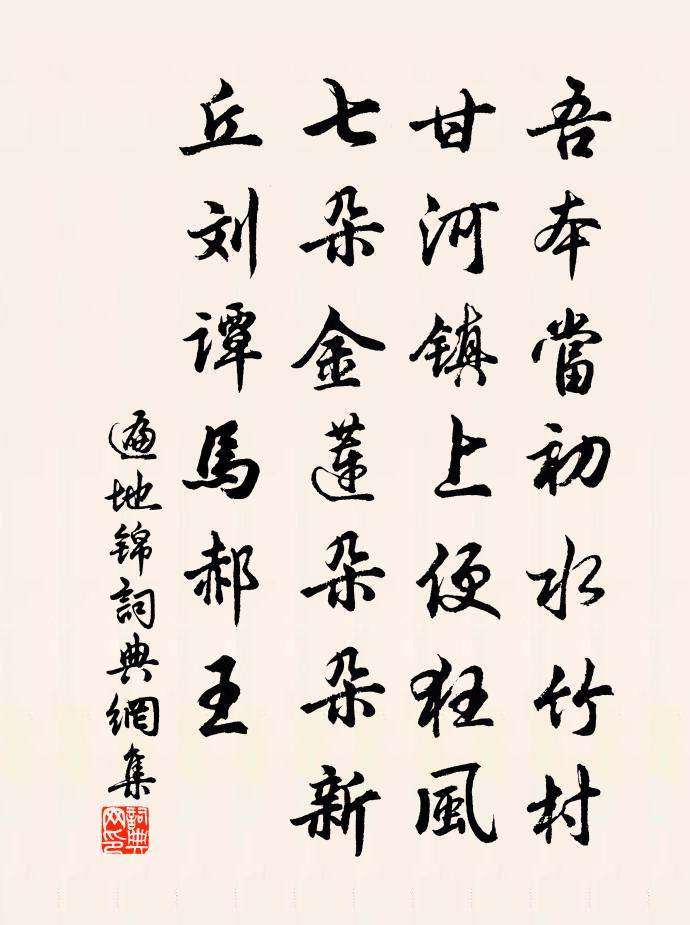 吾本當初水竹村
甘河镇上便狂風
七朵金蓮朵朵新
丘刘谭馬郝王
遍地锦詞典網集
詞典網印